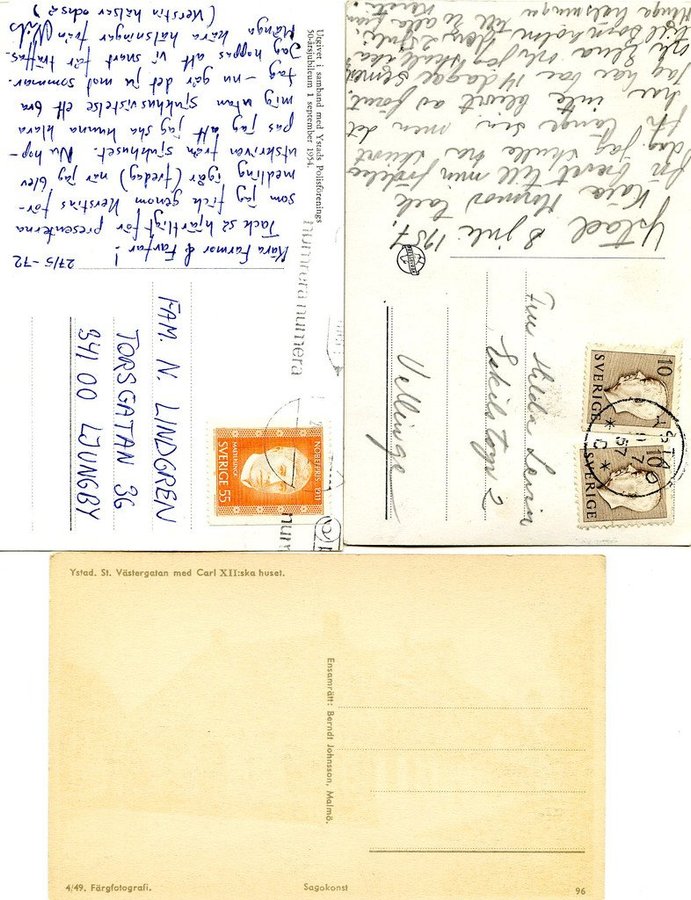 27/5-72
Kära Farmor & Farfar!
Tack så hjärtligt för presenterna
som jag fick genom Kerstins för-
medling igår (fredag) när jag blev
utskriven från sjukhuset. Nu hop-
pas jag att jag ska kunna klara
mig utan sjukhusvistelse ett bra
tag - nu går det ju mot sommar.
Jag hoppas att vi snart får träffas.
Många kära hälsningar från Nils
(Kerstin hälsar också)
Utgivet i samband med Ystads Polisförenings
50-årsjubileum 1 september 1954.
numrera numera
FAM. N. LINDGREN
TORSGATAN 36
341 00 LJUNGBY
NOBELPRIS 1911
SVERIGE 55
Ystad 8 Juli 1957.
Kära tack
brevet till min
dag jag skulle ha
länge sen men det
har inte blivit av förut.
Jag har 14 dagar semester
till Bornholm
Många hälsningar till alla från
Fru Hilda
Eskilstorp 2
Vellinge
SVERIGE
10
SVERIGE
10
YSTAD
57
Ystad. St. Västergatan med Carl XII:ska huset.
Ensamrätt: Berndt Johnsson, Malmö.
4/49. Färgfotografi.
Sagokonst
96